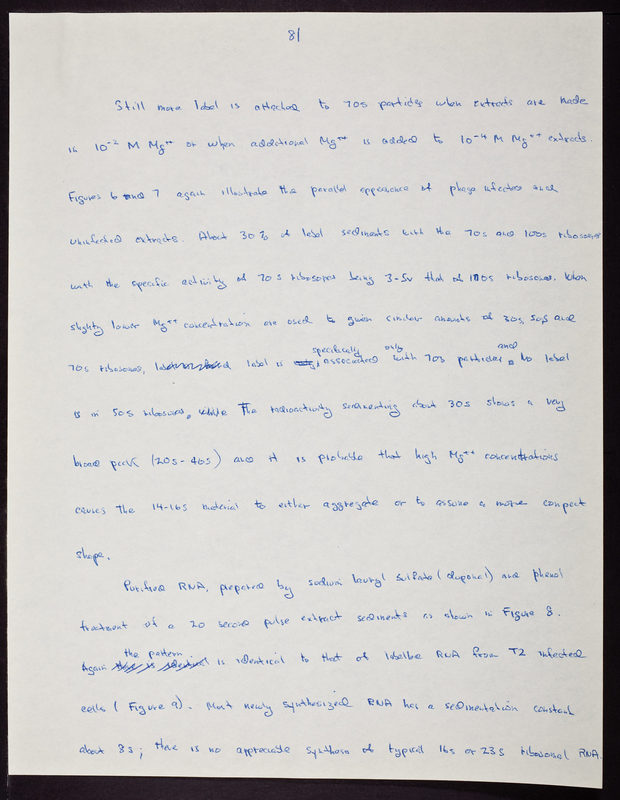 81
Still more label is attached to 70s particles when extracts are made
in 10⁻² M Mg⁺⁺ or when additional Mg⁺⁺ is added to 10⁻⁴ M Mg⁺⁺ extracts.
Figures 6 and 7 again illustrate the parallel appearance of phage infected and
uninfected extracts. About 30% of label sediments with the 70s and 100s ribosomes
with the specific activity of 70s ribosomes being 3-5x that of 100s ribosomes. When
slighty lower Mg⁺⁺ concentration are used to given similar amounts of 30s, 50s and
specifically only and
70s ribosomes, label is associated with 70s particles. No label
is in 50s ribosomes, while The radioactivity sedimenting about 30s shows a very
broad peak (20s-40s) and it is probable that high Mg⁺⁺ concentrations
causes the 14-16s material to either aggregate or to assume a more compact
shape.
Purified RNA, prepared by sodium lauryl sulfate (duponol) and phenol
treatment of a 20 second pulse extract sediments as shown in Figure 8.
the pattern
Again is identical to that of labelled RNA from T2 infected
cells (Figure 9). Most newly synthesized RNA has a sedimentation constant
about 8s; there is no appreciable synthesis of typical 16s or 23s ribosomal RNA.